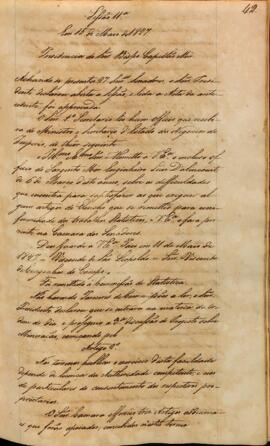 42
Sessão 11ª
Em 15 de Maio de 1827
Presidencia do Snr Bispo Capellão Mór
Achando-se presentes 27 Snrs Senadores, o Snr Presi-
dente declarou aberta a Sessão, e lida a Acta da ante-
cedente foi approvada.
O Snr 1º Secretario leo hum Officio que recebeu
do Ministro, e Secretario d'Estado dos Negocios do
Imperio, do theor seguinte
Illmo e Exmo Snr = Remetto a V. Exª o incluso of-
ficio do Sargento Mór Engenheiro
de 6 de Março d'este anno, sobre as difficuldades
que encontra para satisfazer ao que exigem al-
guns artigos do que se remetteo para con-
formidade dos trabalhos Statisticos, e V. Exª o fará pre-
sente na Camara dos Senadores
Deos Guarde a V. Exª Paço em 11 de Maio de
1827. Visconde de São Leopoldo = Snr Visconde
de Congonhas do Campo.
Foi remettido á Commissão de Statistica.
Não havendo Pareceres de Commissões a ler, o Snr
Presidente declarou que se entrava na materia da Or-
dem do dia, e proseguio a 2ª discussão do Projecto sobre
Minerações, começando pelo
Artigo 2º
Nos terrenos publicos o exercicio desta faculdade
depende de licença da Authoridade competente, e nos
de particulares do consentimento dos respectivos pro-
prietarios.
O Snr offereceo tres Artigos additivos
que forão apoiados, concebidos n'estes termos